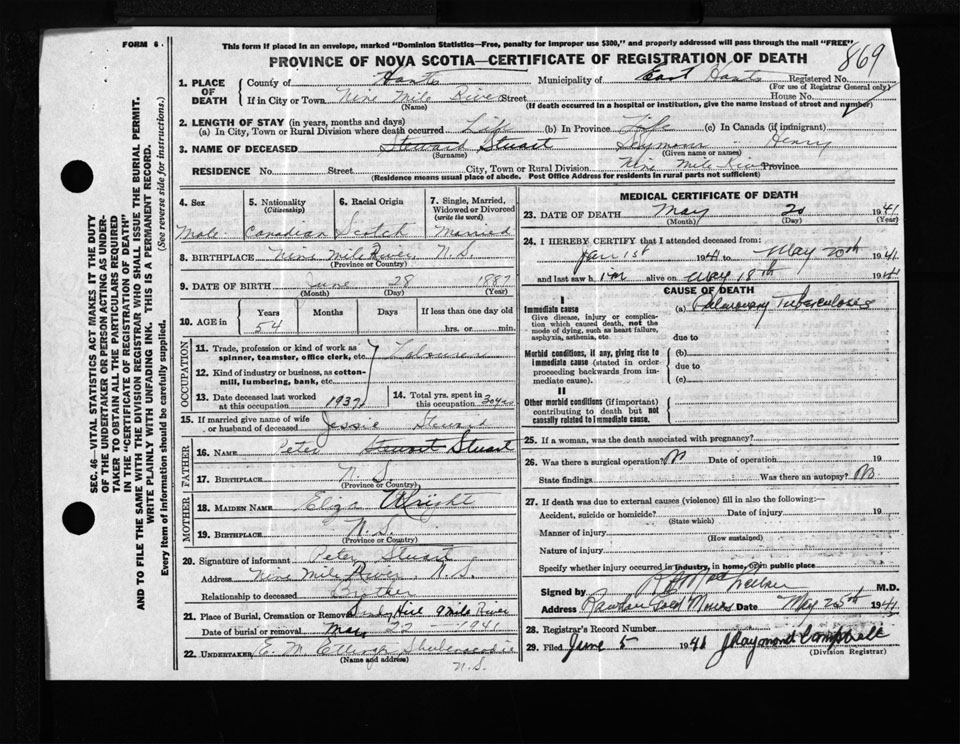 FORM 6.
This form if placed in an envelope, marked "Dominion Statistics—Free, penalty for improper use $300," and properly addressed will pass through the mail "FREE"
869
PROVINCE OF NOVA SCOTIA—CERTIFICATE OF REGISTRATION OF DEATH
1. PLACE OF DEATH
County of Hants Municipality of East Hants Registered No.
(For use of Registrar General only)
If in City or Town Nine Mile River Street House No.
(Name) (If death occurred in a hospital or institution, give the name instead of street and number)
2. LENGTH OF STAY (in years, months and days)
(a) In City, Town or Rural Division where death occurred Life (b) In Province Life (c) In Canada (if immigrant)
3. NAME OF DECEASED Steward Stuart Henry
(Surname) (Given name or names)
RESIDENCE No. Street City, Town or Rural Division Nine Mile Riv Province
(Residence means usual place of abode. Post Office Address for residents in rural parts not sufficient)
4. Sex 5. Nationality (Citizenship) 6. Racial Origin 7. Single, Married, Widowed or Divorced (write the word)
Male Canadian Scotch Married
8. BIRTHPLACE Nine Mile River N.S.
(Province or Country)
9. DATE OF BIRTH June 28 1887
(Month) (Day) (Year)
10. AGE in Years Months Days If less than one day old
54 hrs. or min.
OCCUPATION
11. Trade, profession or kind of work as spinner, teamster, office clerk, etc. Labourer
12. Kind of industry or business, as cotton-mill, lumbering, bank, etc.
13. Date deceased last worked at this occupation 1937 14. Total yrs. spent in this occupation 30 yrs
15. If married give name of wife or husband of deceased Jessie Stuart
FATHER
16. NAME Peter Stewart Stuart
17. BIRTHPLACE N.S.
(Province or Country)
MOTHER
18. MAIDEN NAME Eliza Wright
19. BIRTHPLACE N.S.
(Province or Country)
20. Signature of informant Peter Stuart
Address Nine Mile River, N.S.
Relationship to deceased Brother
21. Place of Burial, Cremation or Removal Sandy Hill 9 Mile River
Date of burial or removal May 22 — 1941
22. UNDERTAKER E. M. Shubenacadie
(Name and address) N.S.
MEDICAL CERTIFICATE OF DEATH
23. DATE OF DEATH May 20 1941
(Month) (Day) (Year)
24. I HEREBY CERTIFY that I attended deceased from:
Jan 1st 1941 to May 20th 1941
and last saw h im alive on May 18th 1941
CAUSE OF DEATH
I
Immediate cause (a) Pulmonary Tuberculosis
Give disease, injury or complication which caused death, not the mode of dying, such as heart failure, asphyxia, asthenia, etc. due to
Morbid conditions, if any, giving rise to immediate cause (stated in order proceeding backwards from immediate cause). (b)
due to
(c)
II
Other morbid conditions (if important) contributing to death but not causally related to immediate cause.
25. If a woman, was the death associated with pregnancy?
26. Was there a surgical operation No Date of operation 19
State findings Was there an autopsy? No
27. If death was due to external causes (violence) fill in also the following:—
Accident, suicide or homicide? Date of injury 19
(State which)
Manner of injury
(How sustained)
Nature of injury
Specify whether injury occurred in industry, in home, or in public place
Signed by M.D.
Address Rawdon Gold Mines Date May 25th 1941
28. Registrar's Record Number
29. Filed June 5 1941 J Raymond Campbell
(Division Registrar)
SEC. 46—VITAL STATISTICS ACT MAKES IT THE DUTY
OF THE UNDERTAKER OR PERSON ACTING AS UNDER-
TAKER TO OBTAIN ALL THE PARTICULARS REQUIRED
IN THE "CERTIFICATE OF REGISTRATION OF DEATH"
AND TO FILE THE SAME WITH THE DIVISION REGISTRAR WHO SHALL ISSUE THE BURIAL PERMIT.
WRITE PLAINLY WITH UNFADING INK. THIS IS A PERMANENT RECORD.
Every item of information should be carefully supplied. (See reverse side for instructions.)